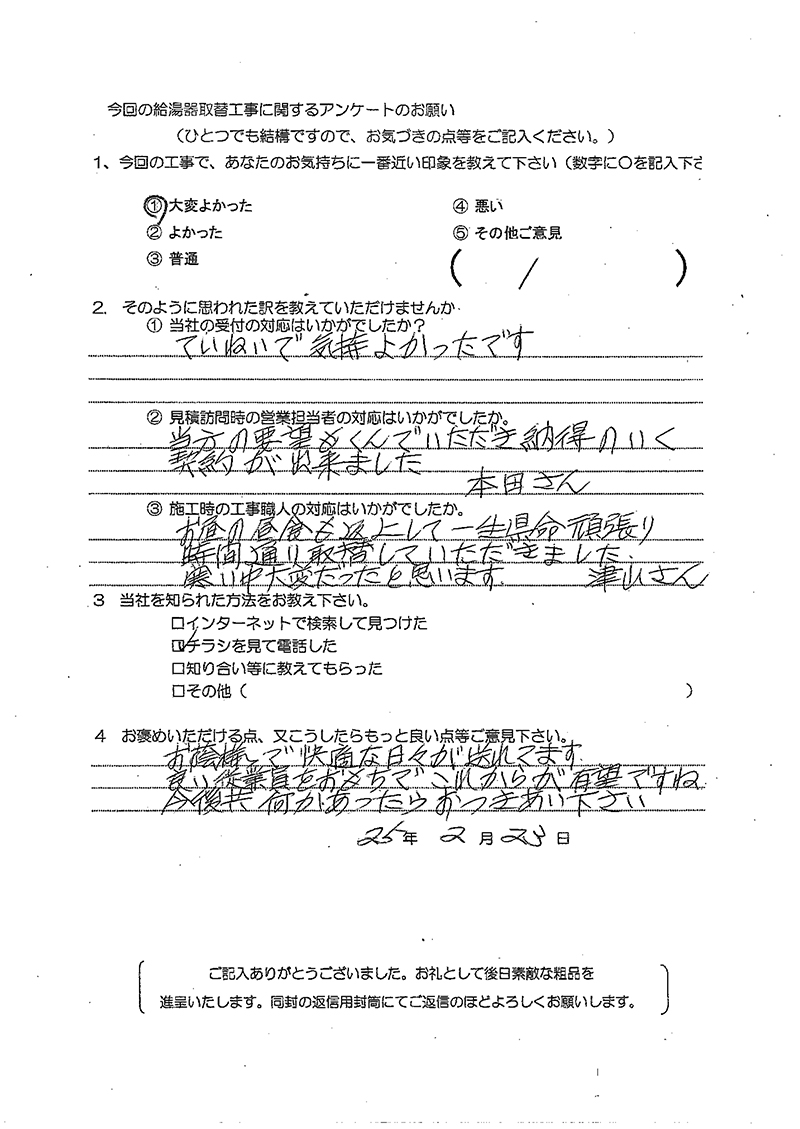 今回の給湯器取替工事に関するアンケートのお願い
(ひとつでも結構ですので、お気づきの点等をご記入ください。)
1、今回の工事で、あなたのお気持ちに一番近い印象を教えて下さい(数字に〇を記入下さ
① 大変よかった
② よかった
③ 普通
④ 悪い
⑤ その他ご意見
( / )
2. そのように思われた訳を教えていただけませんか
① 当社の受付の対応はいかがでしたか?
ていねいで気持よかったです
② 見積訪問時の営業担当者の対応はいかがでしたか。
当方の要望もくんでいただき納得のいく
契約が出来ました
本田さん
③ 施工時の工事職人の対応はいかがでしたか。
お昼の昼食も返上して一生県命頑張り
時間通り取替していただきました.
寒い中大変だったと思います 津山さん
3 当社を知られた方法をお教え下さい。
□インターネットで検索して見つけた
☑チラシを見て電話した
□知り合い等に教えてもらった
□その他( )
4 お褒めいただける点、又こうしたらもっと良い点等ご意見下さい。
お陰様で快適な日々が送れてます
良い従業員をおもちでこれからが有望ですね
今後共何かあったらおつきあい下さい
25年 2月23日
ご記入ありがとうございました。お礼として後日素敵な粗品を
進呈いたします。同封の返信用封筒にてご返信のほどよろしくお願いします。